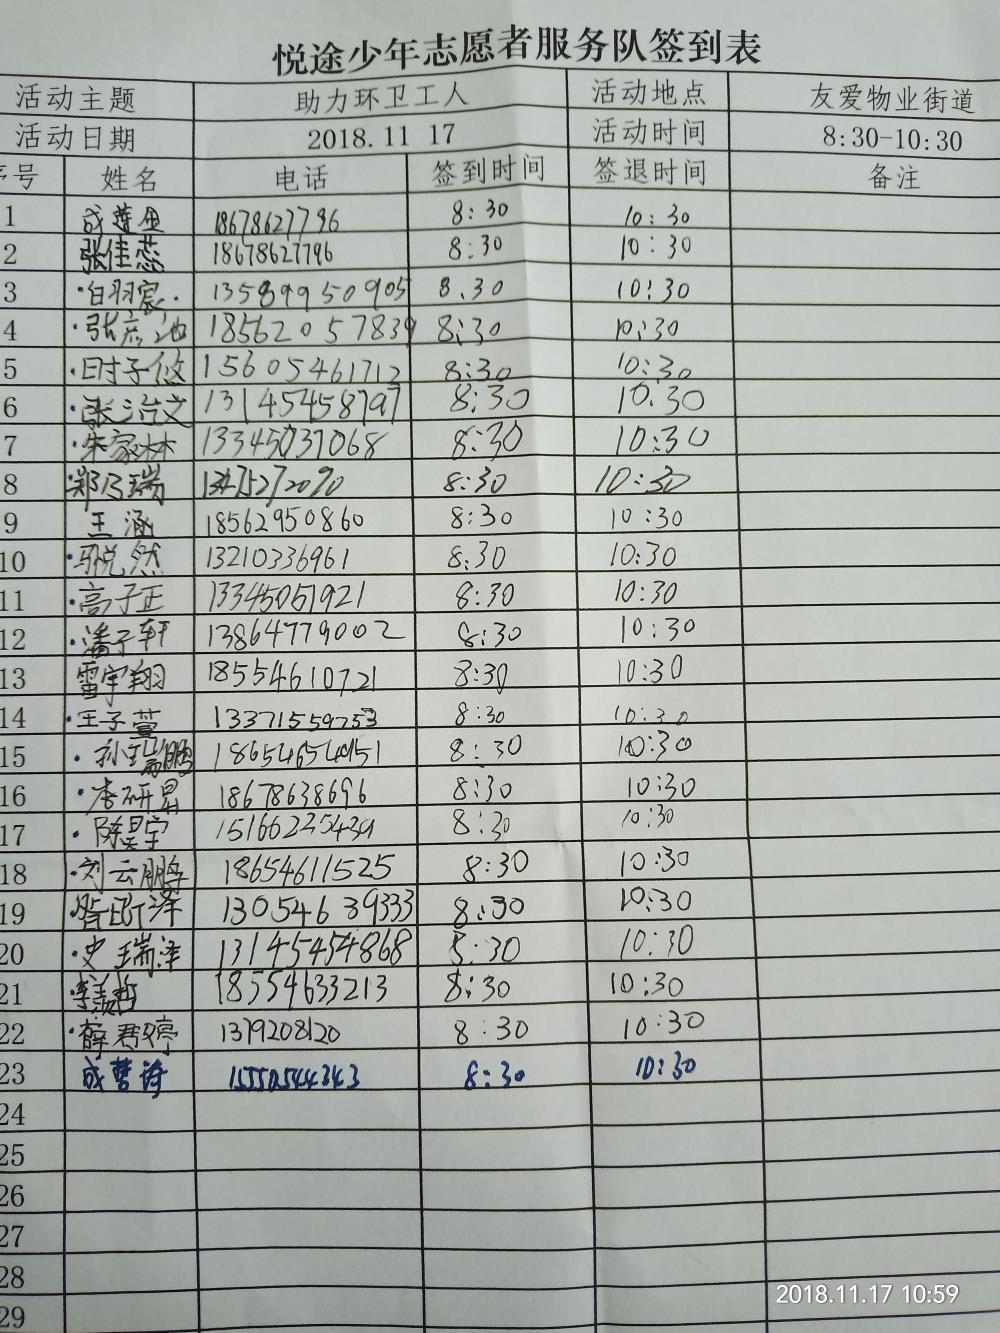 悦途少年志愿者服务队签到表
活动主题 助力环卫工人 活动地点 友爱物业街道
活动日期 2018.11 17 活动时间 8:30-10:30
序号 姓名 电话 签到时间 签退时间 备注
1 18678627796 8:30 10:30
2 张佳蕊 18678627796 8:30 10:30
3 ·白羽宸. 13589950905 8.30 10:30
4 ·张彦池 18562057839 8:30 10:30
5 ·时子悠 15605461712 8:30 10:30
6 ·张 文 13145458797 8:30 10.30
7 ·朱家林 13345037068 8:30 10:30
8 郑乃瑞 8:30 10:30
9 王涵 18562950860 8:30 10:30
10 ·马悦然 13210336961 8:30 10:30
11 ·高子正 13345061921 8:30 10:30
12 ·潘子轩 13864779002 8:30 10:30
13 雷宇翔 18554610721 8:30 10:30
14 ·王子萱 13371559753 8:30 10:30
15 ·孙瑞鹏 18654654951 8:30 10:30
16 ·李研昂 18678638696 8:30 10:30
17 ·陈昊宇 8:30 10:30
18 ·刘云鹏 18654611525 8:30 10:30
19 13054639333 8:30 10:30
20 ·史瑞泽 13145454868 8:30 10:30
21 18554633213 8:30 10:30
22 ·薛君婷 1379208120 8:30 10:30
23 成誉诗 15550544343 8:30 10:30
24
25
26
27
28
29
2018.11.17 10:59